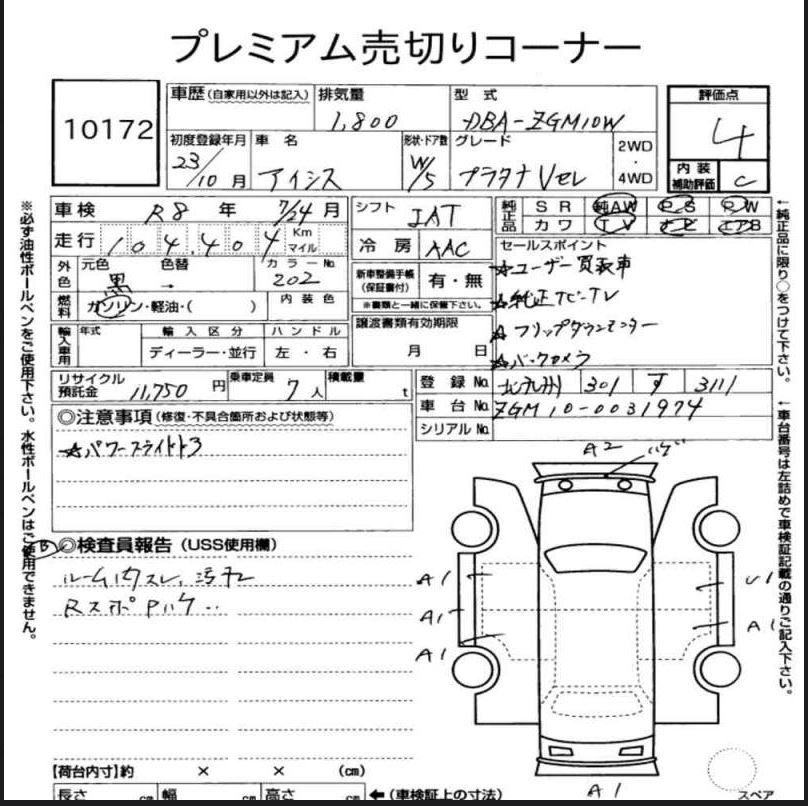 プレミアム売切りコーナー
10172
車歴 (自家用以外は記入) 排気量 型式
1,800 DBA-ZGM10W
初度登録年月 車名 形状・ドア数 グレード 2WD・4WD
23/10月 アイシス W/5 プラタナVセレ
評価点
4
内装補助評価 C
車検 R8年 7/24月
走行 104,404 Km マイル
外色 元色 色替 カラーNo.
黒 202
燃料 ガソリン・軽油・( ) 内装色
輸入車用 年式 輸入区分 ハンドル
ディーラー・並行 左・右
シフト IAT
冷房 AAC
新車整備手帳(保証書付) 有・無
※書類と一緒に保管下さい。
譲渡書類有効期限
月 日
純正品 SR 純AW PS PW
カワ TV ナビ エアB
セールスポイント
☆ユーザー買取車
☆純正ナビ・TV
☆フリップダウンモニター
☆バックカメラ
リサイクル預託金 11,750円 乗車定員 7人 積載量 t
登録No. 北九州 301 す 3111
車台No. ZGM10-0031974
シリアルNo.
◎注意事項(修復・不具合箇所および状態等)
☆パワースライドドア
B ◎検査員報告(USS使用欄)
ルーム内スレ、汚れ
RスポPハゲ
A2 ハゲ
A1
A1
A1
U1
A1
A1
スペア
【荷台内寸】約 × × (cm)
長さ cm 幅 cm 高さ cm ←(車検証上の寸法)
※必ず油性ボールペンをご使用下さい。水性ボールペンはご使用できません。
←純正品に限り○をつけて下さい。
←車台番号は左詰めで車検証記載の通りご記入下さい。